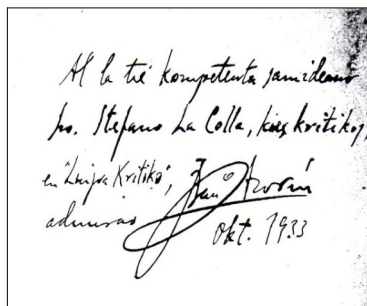 Al la tre kompetenta samideano
so. Stefano La Colla, kies kritikoj,
en "Lingva Kritiko",
admiras
Okt. 1933